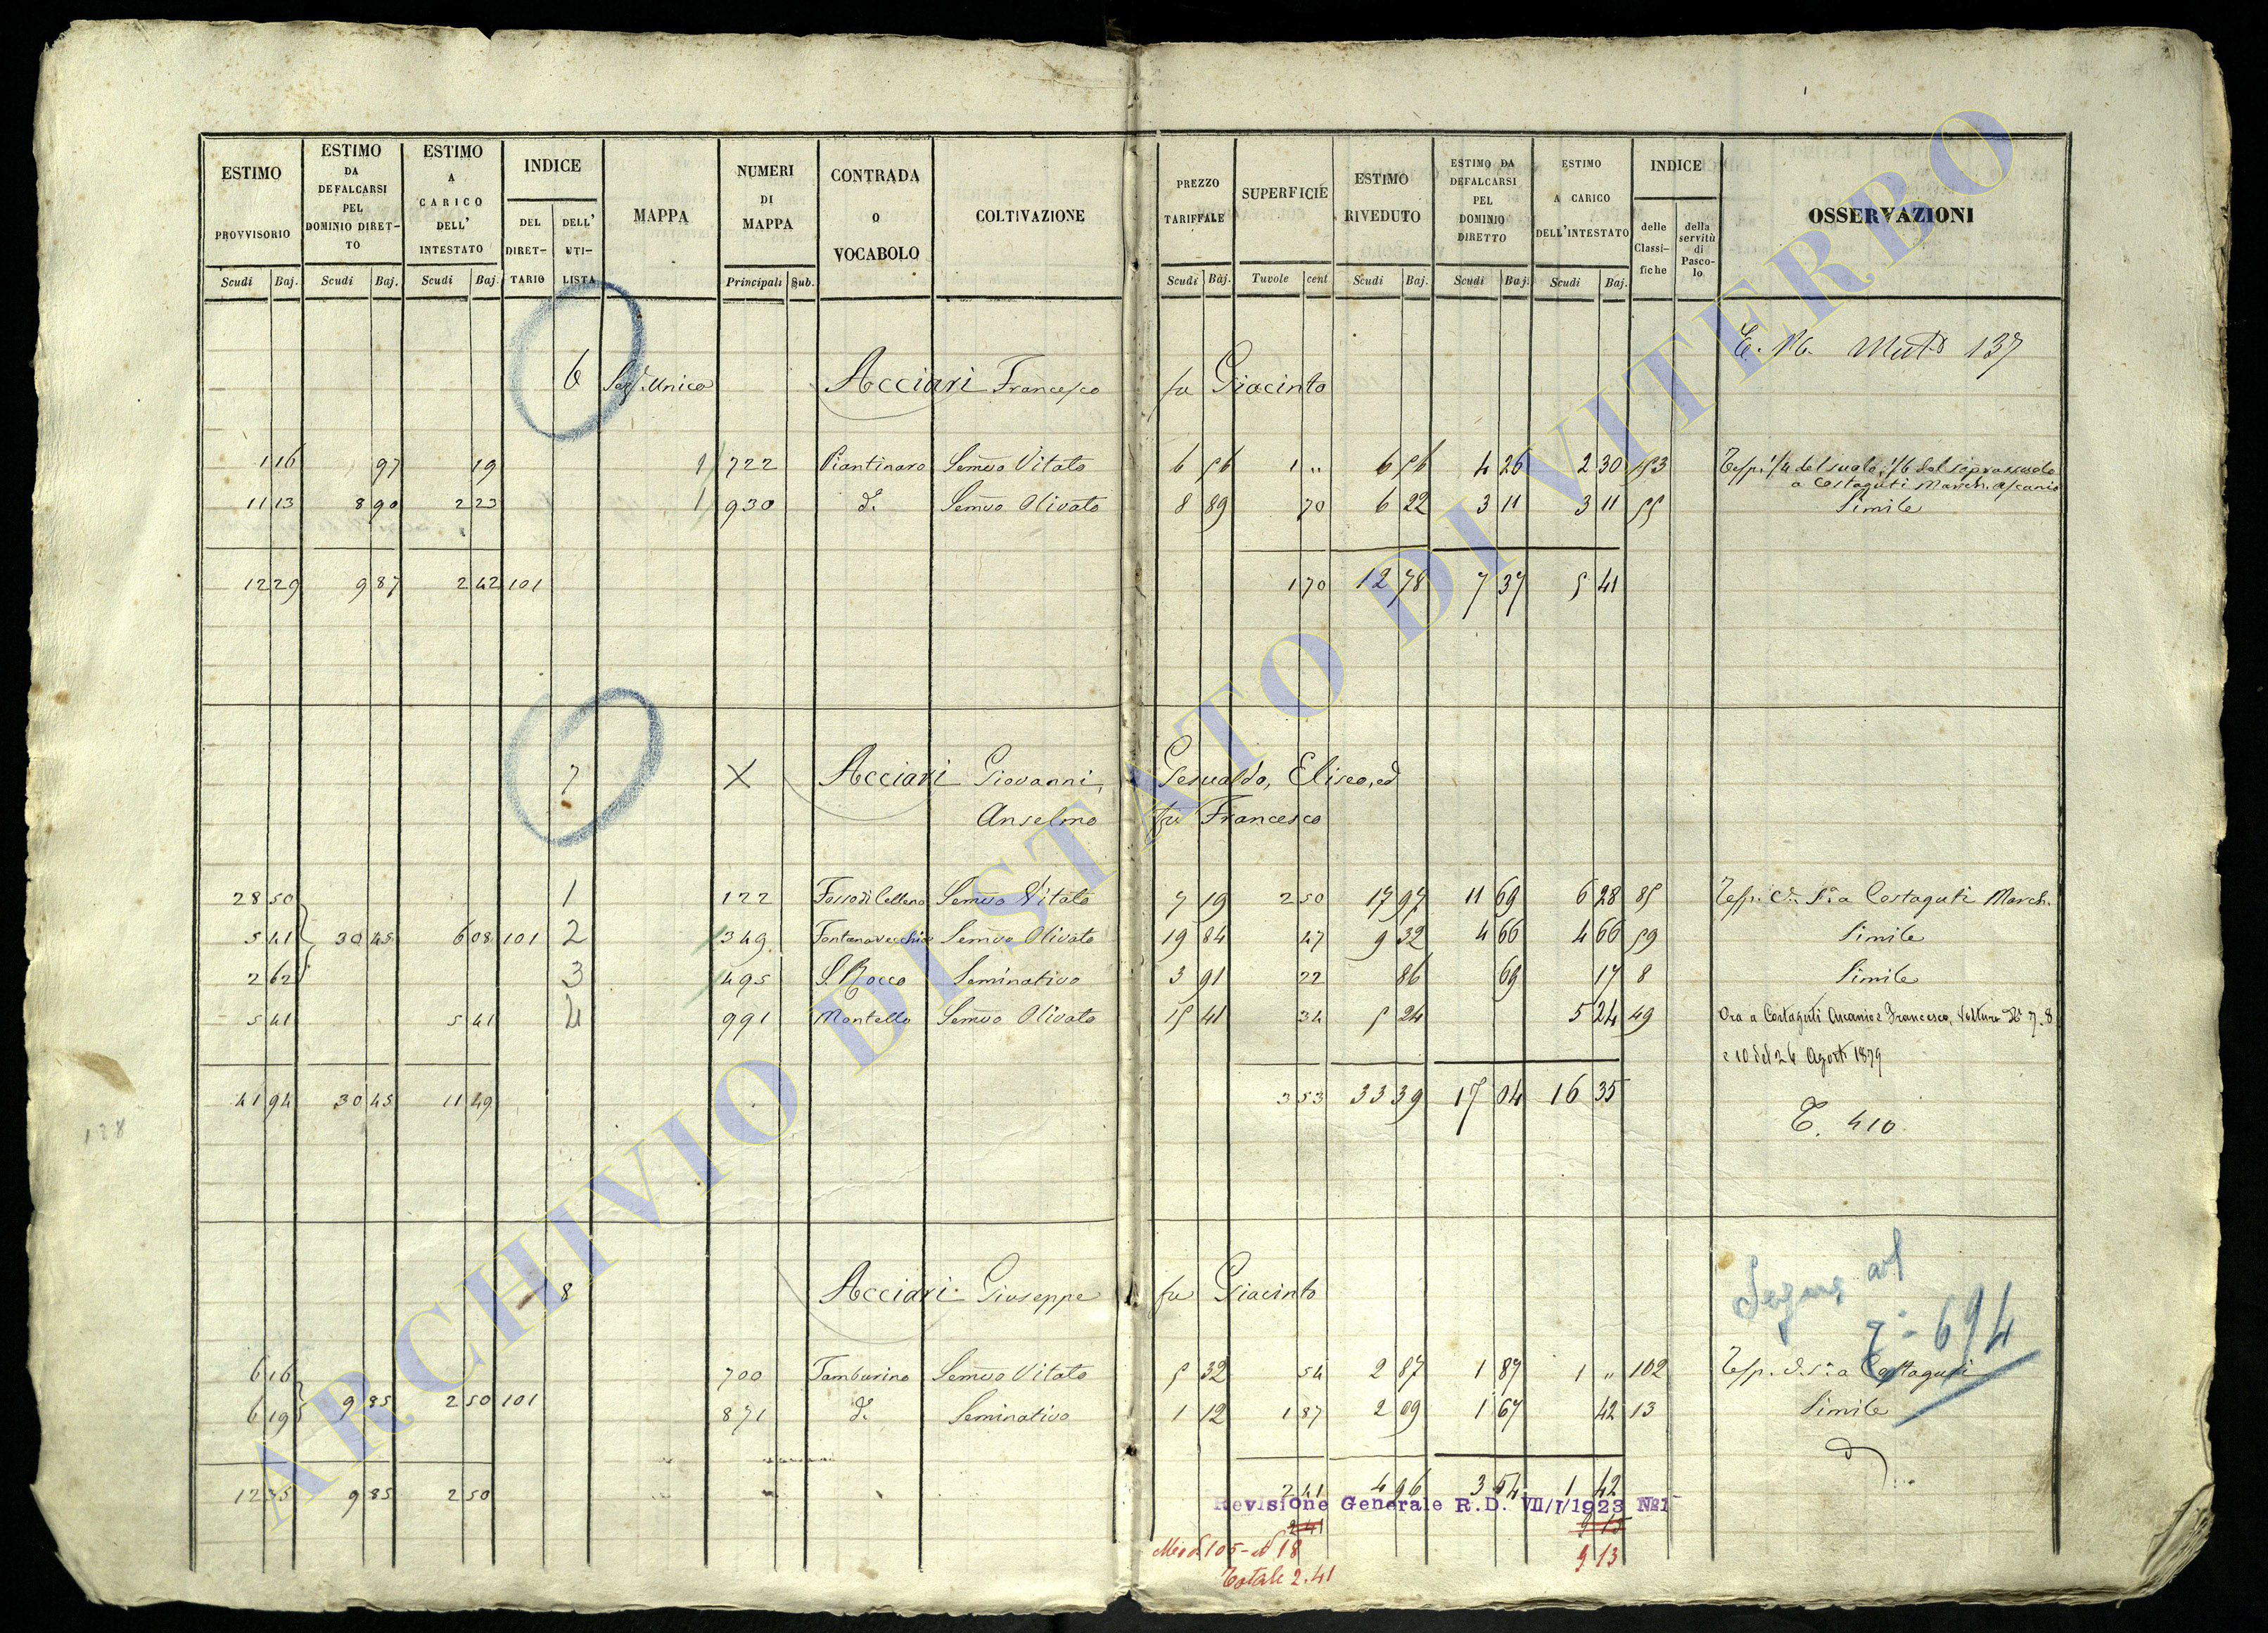 ESTIMO PROVVISORIO
ESTIMO DA DEFALCARSI PEL DOMINIO DIRET–TO
ESTIMO A CARICO DELL' INTESTATO
INDICE
DEL DIRET–TARIO
DELL' UTI–LISTA
MAPPA
NUMERI DI MAPPA
CONTRADA O VOCABOLO
COLTIVAZIONE
PREZZO TARIFFALE
SUPERFICIE
ESTIMO RIVEDUTO
ESTIMO DA DEFALCARSI PEL DOMINIO DIRETTO
ESTIMO A CARICO DELL'INTESTATO
INDICE
delle Classi–fiche
della servitù di Pasco–lo
OSSERVAZIONI
Scudi Baj. Scudi Baj. Scudi Baj. Principali Sub. Scudi Baj. Tuvole cent Scudi Baj. Scudi Baj. Scudi Baj.
137
6 Unico Acciari Francesco fu Giacinto
1 16 97 19 1 722 Piantinaro Semvo Vitato 6 56 1 " 6 56 4 26 2 30 153
a Costaguti March. Ascanio
11 13 8 90 2 23 1 930 d.o Semvo Olivato 8 89 70 6 22 3 11 3 11 55 Simile
12 29 9 87 2 42 101 1 70 12 78 7 37 5 41
7 X Acciari Giovanni, Gesualdo, Eliseo, ed
Anselmo fu Francesco
28 50 1 122 Fosso di Celleno Semvo Vitato 7 19 2 50 17 97 11 69 6 28 85 Costaguti March.
5 41 30 45 6 08 101 2 349 Fontanavecchia Semvo Olivato 19 84 47 9 32 4 66 4 66 59 Simile
2 62 3 495 S. Rocco Seminativo 3 91 22 86 69 17 8 Simile
5 41 5 41 4 991 Montello Semvo Olivato 15 41 34 5 24 5 24 49 Ora a Costaguti Ascanio e Francesco, Volture Ni 7. 8
e 10 del 26 Agosto 1879
41 94 30 45 11 49 3 53 33 39 17 04 16 35
T. 410
128
Segue al
694
8 Acciari Giuseppe fu Giacinto
6 16 700 Tamburino Semvo Vitato 5 32 54 2 87 1 87 1 " 102 a Costaguti
6 19 9 85 2 50 101 871 d.o Seminativo 1 12 1 87 2 09 1 67 42 13 Simile
12 35 9 85 2 50 2 41 4 96 3 54 1 42
Revisione Generale R.D. VII/I/1923 No1
2 41
105 18 9 13
Totale 2.41
ARCHIVIO DI STATO DI VITERBO